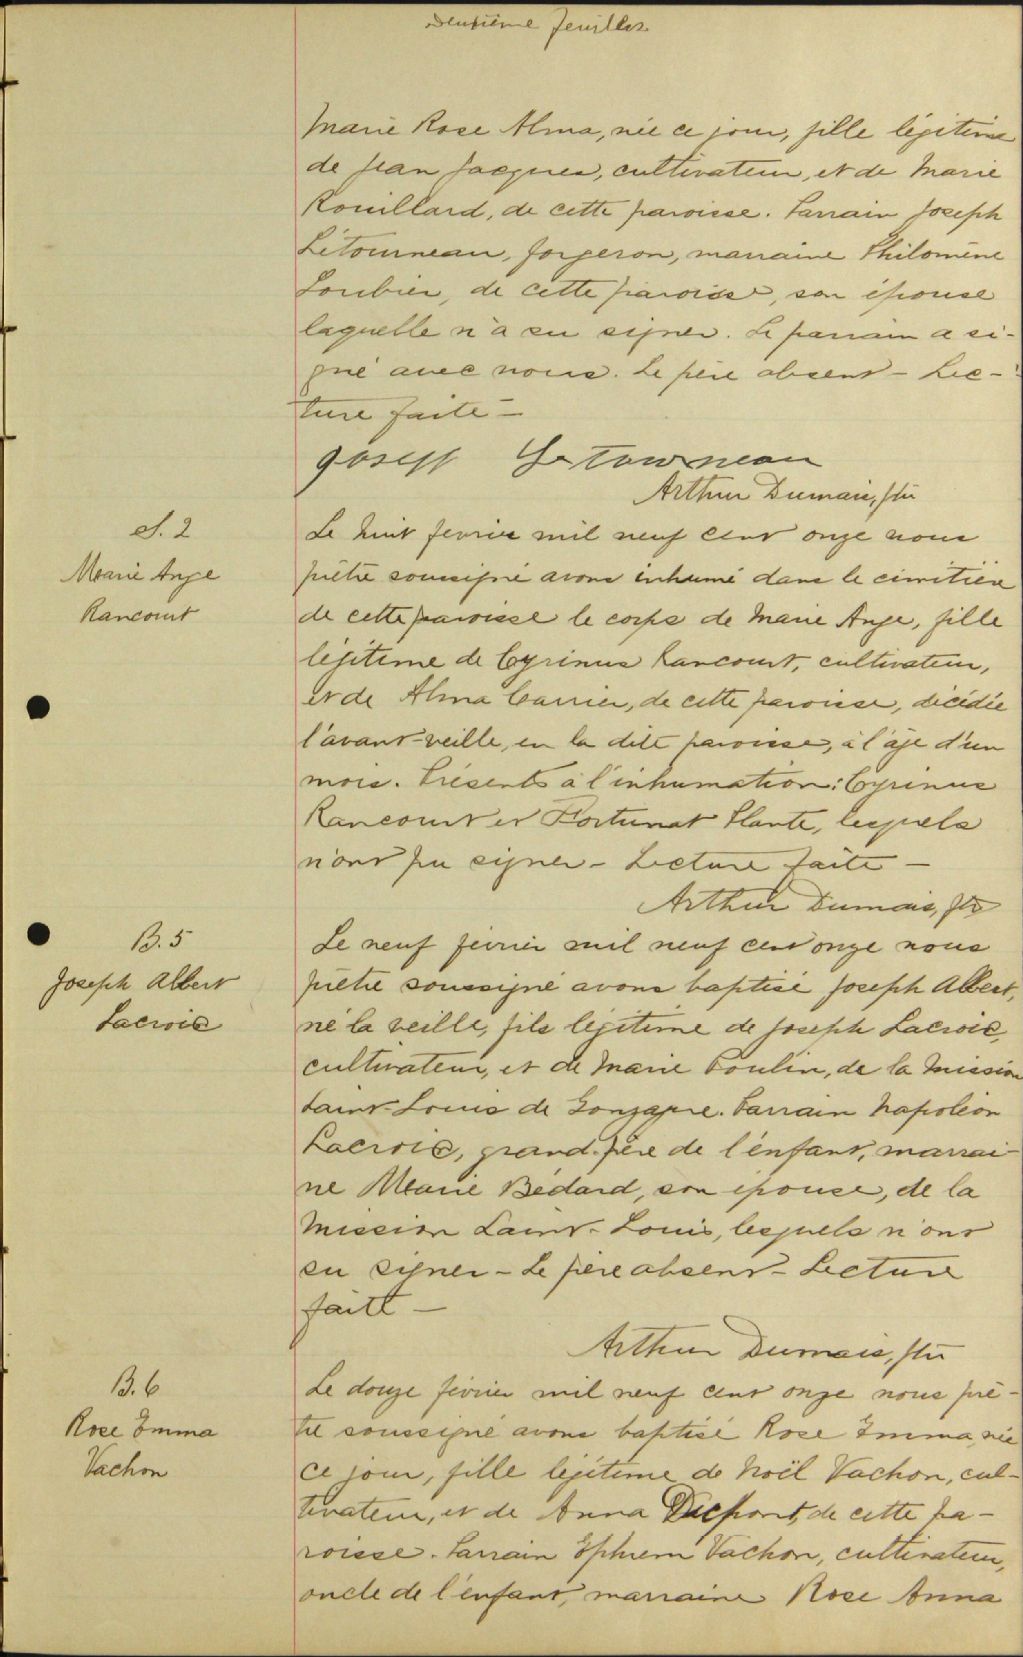 Deuxième feuillet
Marie Rose Alma, née ce jour, fille légitime
de Jean Jacques, cultivateur, et de Marie
Rouillard, de cette paroisse. Parrain Joseph
Létourneau, forgeron, marraine Philomène
Loubier, de cette paroisse, son épouse
laquelle n'a su signer. Le parrain a si-
gné avec nous. Le père absent - Lec-
ture faite -
Joseph Letourneau
Arthur Dumais, ptre
S. 2
Marie Ange
Rancourt
Le huit fevrier mil neuf cent onze nous
prêtre soussigné avons inhumé dans le cimetière
de cette paroisse le corps de Marie Ange, fille
légitime de Cyrinus Rancourt, cultivateur,
et de Alma Carrier, de cette paroisse, décédée
l'avant-veille, en la dite paroisse, à l'âge d'un
mois. Présents à l'inhumation: Cyrinus
Rancourt et Fortunat Plante, lesquels
n'ont pu signer - Lecture faite -
Arthur Dumais, ptr
B. 5
Joseph Albert
Lacroix
Le neuf février mil neuf cent onze nous
prêtre soussigné avons baptisé Joseph Albert,
né la veille, fils légitime de Joseph Lacroix,
cultivateur, et de Marie Poulin, de la Mission
Saint-Louis de Gonzague. Parrain Napoléon
Lacroix, grand-père de l'enfant, marrai-
ne Marie Bédard, son épouse, de la
Mission Saint-Louis, lesquels n'ont
su signer - Le père absent - Lecture
faite -
Arthur Dumais, ptr
B. 6
Rose Emma
Vachon
Le douze février mil neuf cent onze nous prê-
tre soussigné avons baptisé Rose Emma, née
ce jour, fille légitime de Noël Vachon, cul-
tivateur, et de Anna de cette pa-
roisse. Parrain Ephrem Vachon, cultivateur,
oncle de l'enfant, marraine Rose Anna